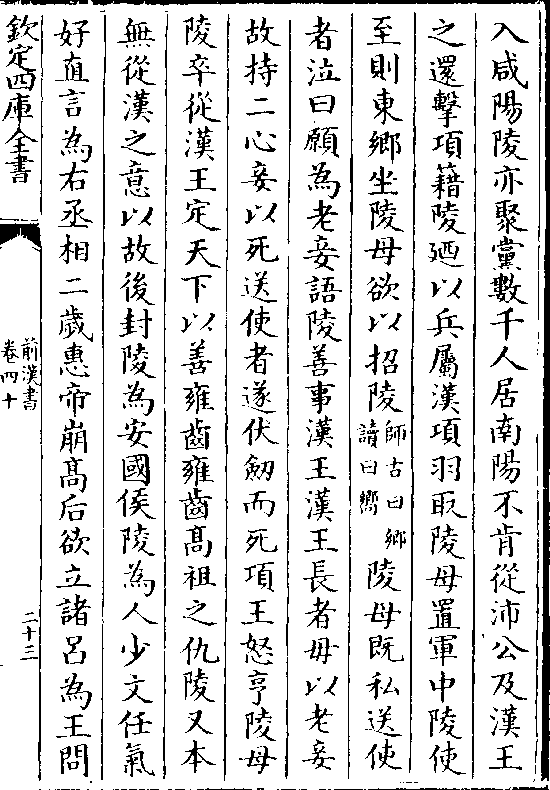 入咸陽陵亦聚黨數千人居南陽不肯從沛公及漢王
之還擊項籍陵廼以兵屬漢項羽取陵母置軍中陵使
至則東鄉坐陵母欲以招陵師古曰鄉讀曰嚮陵母既私送使
者泣曰願為老妾語陵善事漢王漢王長者毋以老妾
故持二心妾以死送使者遂伏劒而死項王怒亨陵母
陵卒從漢王定天下以善雍齒雍齒髙祖之仇陵又本
無從漢之意以故後封陵為安國侯陵為人少文任氣
好直言為右丞相二歲惠帝崩髙后欲立諸呂為王問
欽定四庫全書
前漢書
卷四十
二十三